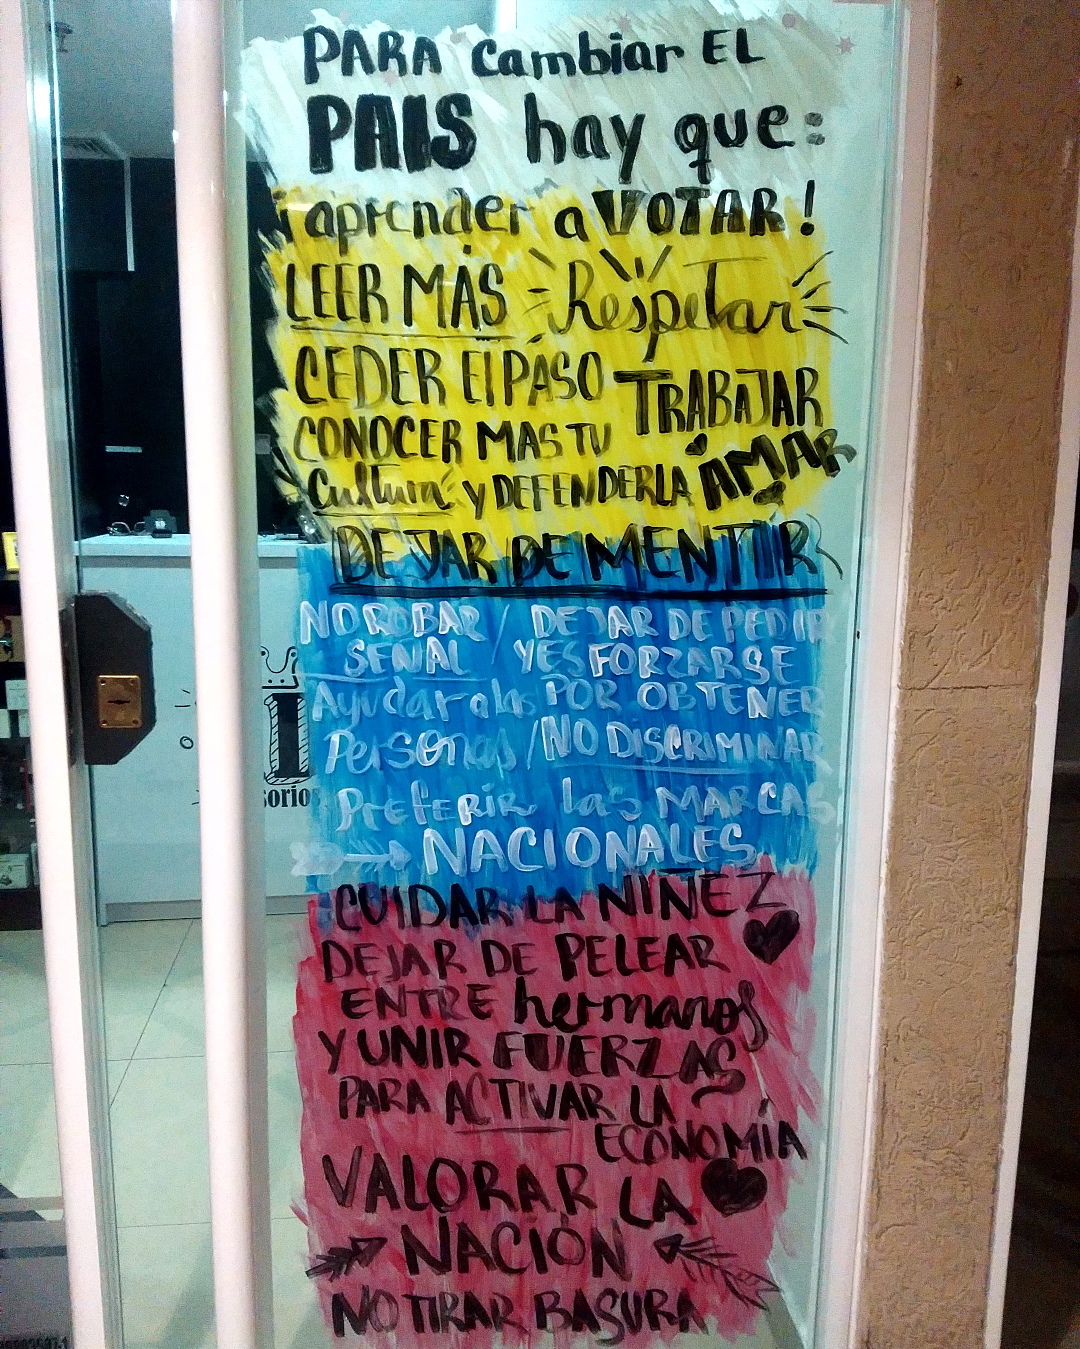 PARA cambiar EL
PAIS hay que:
¡aprender a VOTAR!
LEER MÁS Respetar
CEDER El PASO TRABAJAR
CONOCER MAS TU
Cultura y DEFENDERLA AMAR
DEJAR DE MENTIR
NO ROBAR / DEJAR DE PEDIR
SEÑAL / Y ESFORZARSE
Ayudar a las POR OBTENER
Personas / NO DISCRIMINAR
Preferir las MARCAS
NACIONALES
CUIDAR LA NIÑEZ
DEJAR DE PELEAR
ENTRE hermanos
Y UNIR FUERZAS
PARA ACTIVAR LA
ECONOMÍA
VALORAR LA
NACIÓN
NO TIRAR BASURA